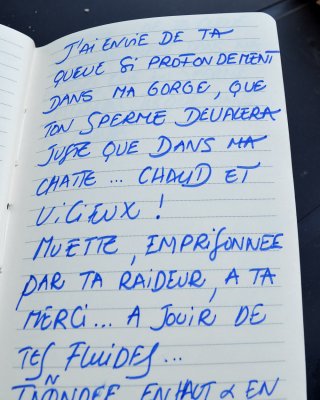 J'AI ENVIE DE TA
QUEUE SI PROFONDEMENT
DANS MA GORGE, QUE
TON SPERME DEVALERA
JUSTE QUE DANS MA
CHATTE ... CHAUD ET
VICIEUX !
MUETTE, EMPRISONNEE
PAR TA RAIDEUR, A TA
MERCI... A JOUIR DE
TES FLUIDES...
INONDEE EN HAUT & EN